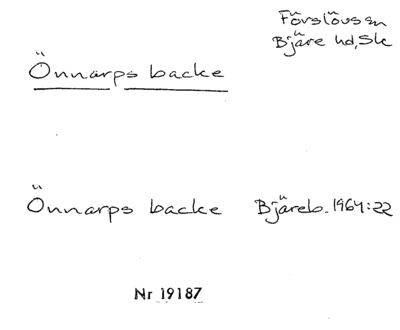 Förslövs sn
Bjäre hd, Sk
Önnarps backe
Önnarps backe Bjäreb. 1964:22
Nr 19187